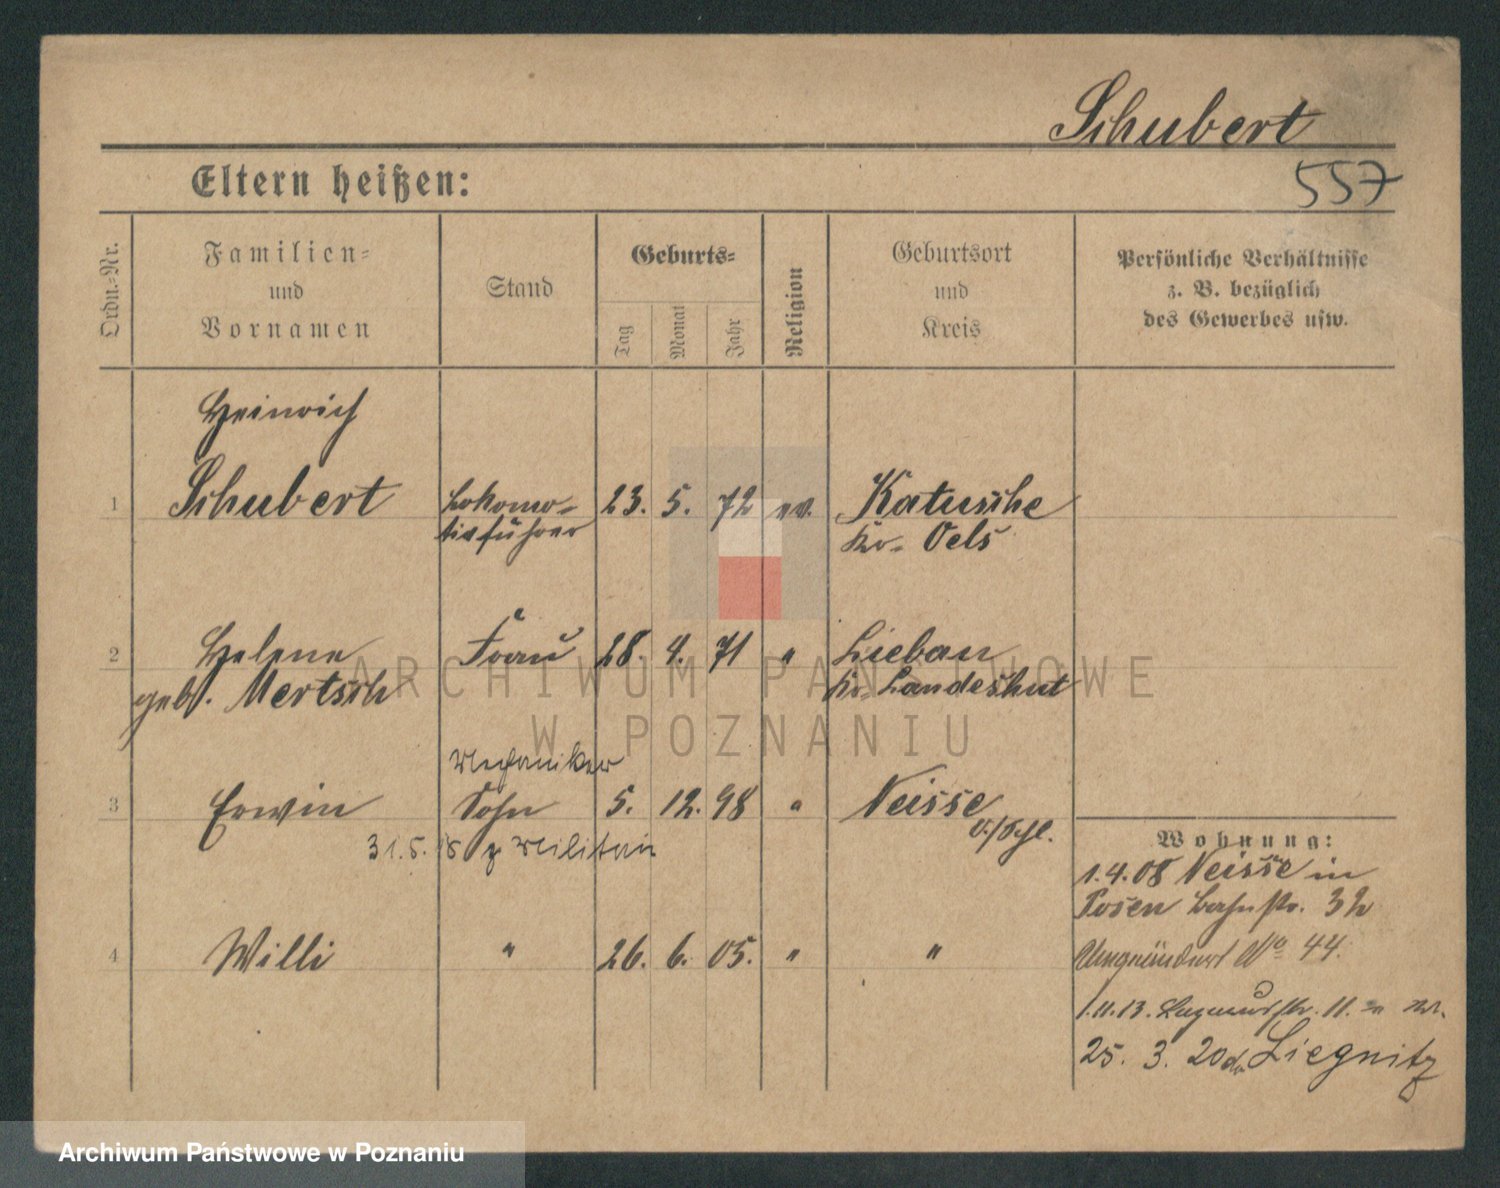 Schubert
557
Eltern heißen:
Ordn.-Nr.
Familien-
und
Vornamen
Stand
Geburts-
Tag
Monat
Jahr
Religion
Geburtsort
und
Kreis
Persönliche Verhältnisse
z. B. bezüglich
des Gewerbes usw.
Heinrich
1 Schubert Lokomo- 23. 5. 72 ev. Katusche
tivführer Kr. Oels
2 Helene Frau 28. 4. 71 " Liebau
geb. Mertsch Kr. Landeshut
Mechaniker
3 Erwin Sohn 5. 12. 98 " Neisse
O./Schl.
31.5.18 z Militair
Wohnung:
1.4.08 Neisse in
Posen Bahnstr. 32
4 Willi " 26. 6. 05. " "
No 44.
1.11.13. 11.
25. 3. 20 Liegnitz
ARCHIWUM PAŃSTWOWE
W POZNANIU
Archiwum Państwowe w Poznaniu